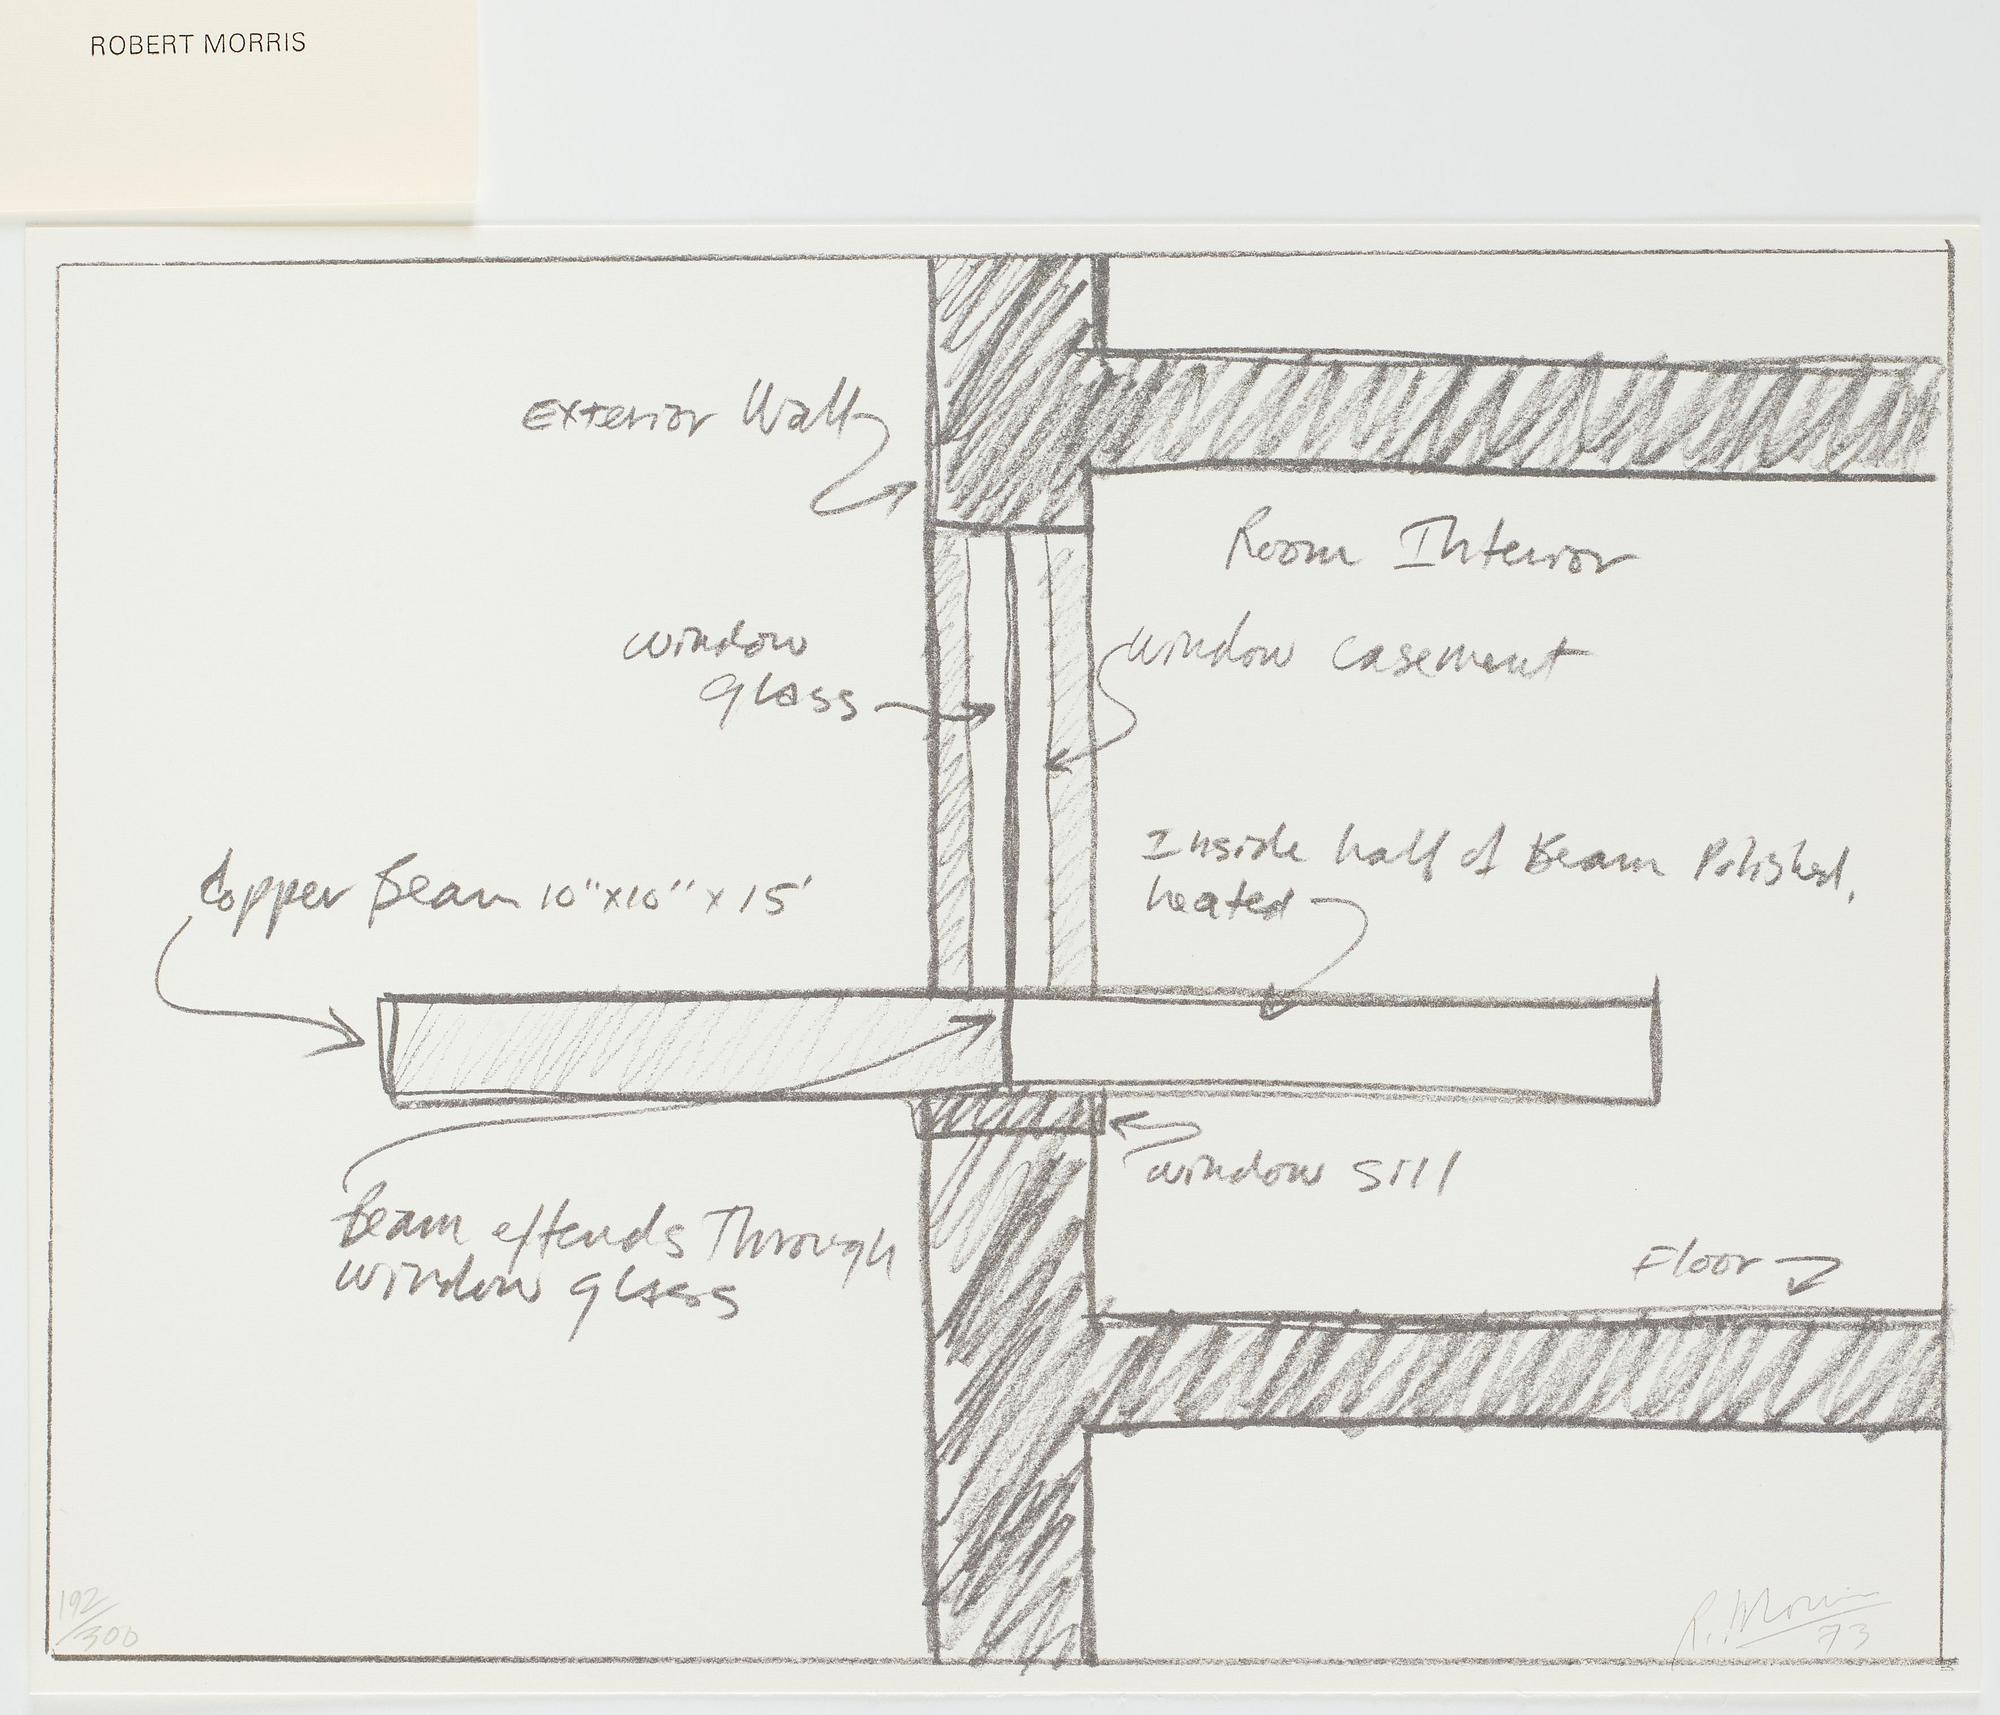 ROBERT MORRIS
Exterior Wall
Room Interior
window
glass
window casement
Inside half of Beam Polished,
heated
Copper Beam 10"x10" x 15'
window sill
Beam extends Through
window glass
Floor
192/300
R. Morris
73